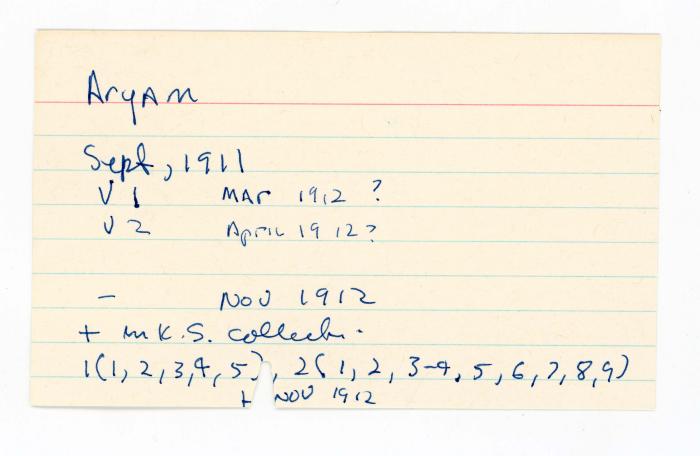 Aryan
Sept, 1911
V 1 MAr 1912 ?
V 2 April 1912?
- NOV 1912
+ in K.S. collectn.
1(1,2,3,4,5), 2(1, 2, 3-4, 5, 6, 7, 8, 9)
+ NOV 1912